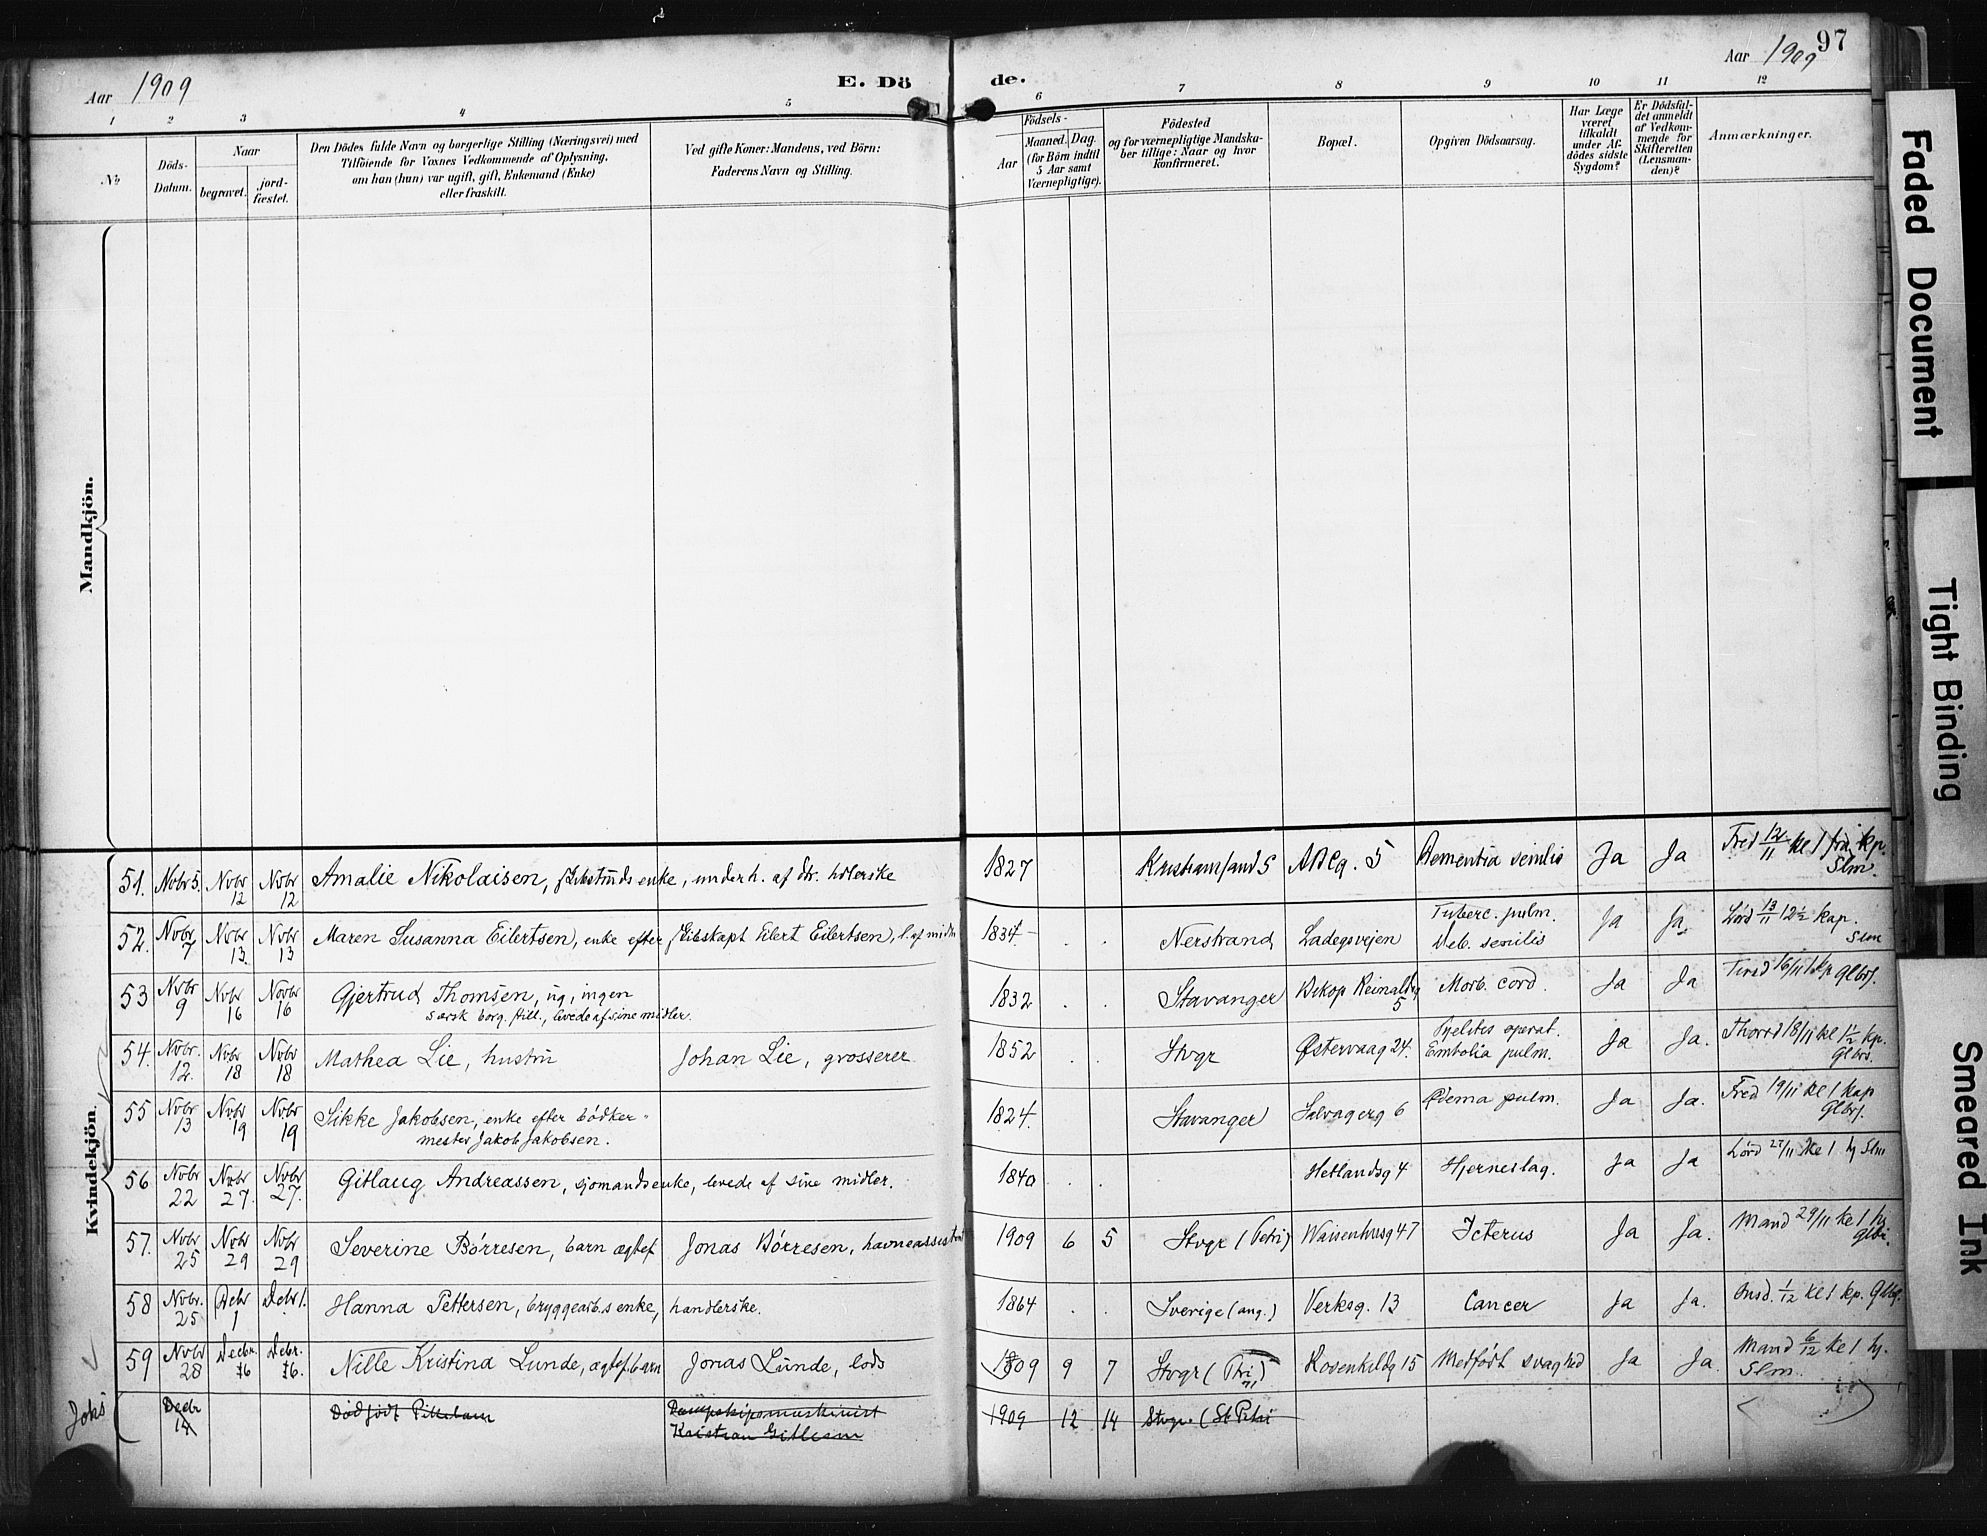 Aar 1909
E. Dö
de.
Aar 1909
97
1 2 3 4 5 6 7 8 9 10 11 12
No
Döds-
Datum.
Naar
begravet.
jord-
fæstet.
Den Dödes fulde Navn og borgerlige Stilling (Næringsvei) med
Tilföiende for Voxnes Vedkommende af Oplysning,
om han (hun) var ugift, gift, Enkemand (Enke)
eller fraskilt.
Ved gifte Koner: Mandens, ved Börn:
Faderens Navn og Stilling.
Födsels-
Aar
Maaned. Dag.
(for Börn indtil
5 Aar samt
Værnepligtige).
Födested
og for værnepligtige Mandska-
ber tillige: Naar og hvor
konfirmeret.
Bopæl.
Opgiven Dödsaarsag.
Har Læge
været
tilkaldt
under Af-
dödes sidste
Sygdom?
Er Dödsfal-
det anmeldt
af Vedkom-
mende for
Skifteretten
(Lensman-
den)?
Anmærkninger.
Mandkjön.
Kvindekjön.
51. Nvbr 5. Nvbr 12 Nvbr 12 Amalie Nikolaisen, enke, underh. af dtr. hdlerske 1827 Kristiansand S ABCg. 5 Dementia senilis Ja Ja Fred 12/11 kl 1 fra kp. Slm.
52. Nvbr 7 Nvbr 13 Nvbr 13 Maren Susanna Eilertsen, enke efter skibskapt Eilert Eilertsen, l. af midl 1834 . . Nerstrand Ladegsvejen Tuberc. pulm. Deb. senilis Ja Ja. Lörd 13/11 12 1/2 kap. Slm
53 Nvbr 9 Nvbr 16 Novbr 16 Gjertrud Thomsen, ug, ingen
særsk borg. still., levede af sine midler. 1832 . . Stavanger Biskop Reinaldsg 5 Morb. cord. Ja Ja Tirsd 16/11 1 kp Glbrf.
54. Nvbr. 12. Nvbr 18 Nvbr 18 Mathea Lie, hustru Johan Lie, grosserer 1852 . . Stvgr Østervaag 24. Pyelitis operat. Embolia pulm. Ja Ja. Thorsd 18/11 kl 1/2 kp. Glbrs.
55 Nvbr 13 Nvbr 19 Nvbr 19 Sikke Jakobsen, enke efter bödker-
mester Jakob Jakobsen. 1824. Stavanger Salvagerg 6 Ødema pulm. Ja Ja. Fred 19/11 kl 1 kap Glbrf.
56 Nvbr 22 Nvbr 27. Nvbr 27. Gitlaug Andreassen, sjomands enke, levede af sine midler. 1840 . . Hetlandsg 4 Hjerneslag. Ja Ja Lörd 27/11 kl 1 hj Slm
57. Nvbr 25 Nvbr 29 Nvbr 29 Severine Börresen, barn ægtef Jonas Börresen, havneassistent 1909 6 5 Stvgr (Petri) Waisenhusg 47 Icterus Ja Ja. Mand 29/11 kl 1 hj Glbr.
58 Nvbr. 25 Debr 1 Debr 1. Hanna Pettersen, bryggearb.s enke, handlerske. 1864 . . Sverige (ang.) Verksg. 13 Cancer Ja Ja. Onsd. 1/12 kl 1 kp. Glbg.
59 Nvbr 28 Decbr. 6 Debr. 6. Nille Kristina Lunde, ægtef. barn Jonas Lunde, lods 1909 9 7 Stvgr (Petri) Rosenkildg 15 Medfödt svaghed Ja Ja. Mand 6/12 kl 1 hj. Slm.
Decbr 14 Dödfödt Pikebarn Dampskipsmaskinist
Kristian Gitlesen 1909 12 14 Stvgr. (St Petri
Faded Document
Tight Binding
Smeared Ink